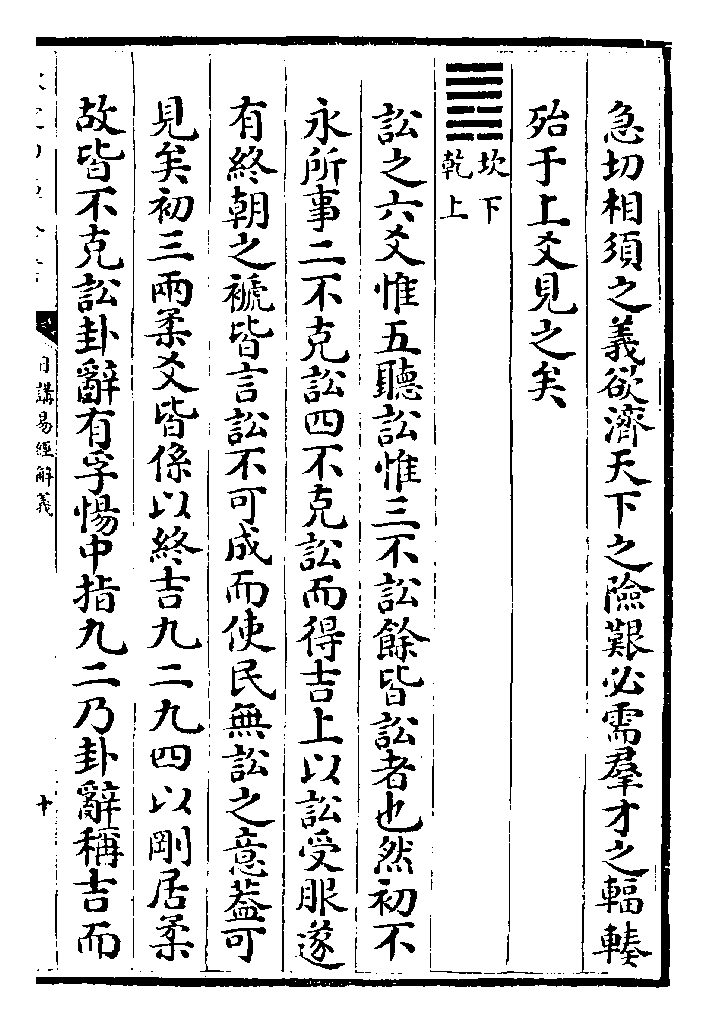 急切相須之義欲濟天下之險艱必需羣才之輻輳
殆于上爻見之矣
坎下
乾上
訟之六爻惟五聽訟惟三不訟餘皆訟者也然初不
永所事二不克訟四不克訟而得吉上以訟受服遂
有終朝之褫皆言訟不可成而使民無訟之意葢可
見矣初三兩柔爻皆係以終吉九二九四以剛居柔
故皆不克訟卦辭有孚惕中指九二乃卦辭稱吉而
日講易經解義
十